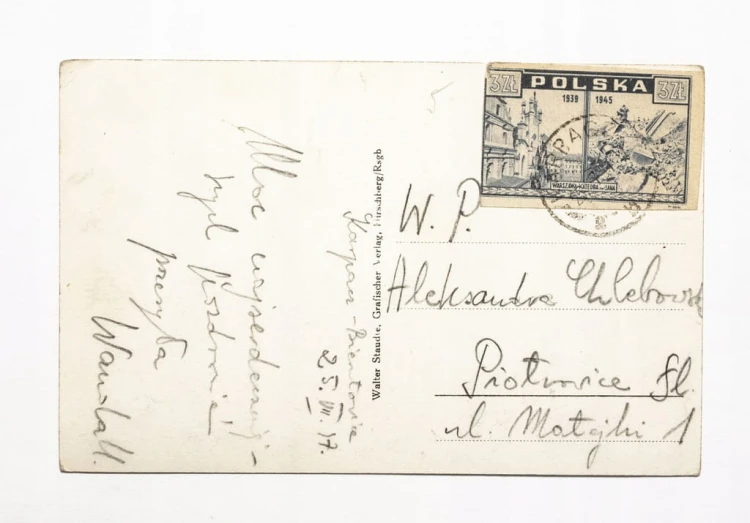 Moc najserdeczniej-
szych pozdrowień
przesyła
Wanda H.
Karpacz-Bierutowice
47
Walter Staudte, Grafischer Verlag, Hirschberg/Rsgb
3ZŁ POLSKA 3ZŁ
1939 1945
WARSZAWA-KATEDRA ŚW. JANA
W. P.
Aleksandra Chlebowska
Piotrowice Śl.
ul. Matejki 1